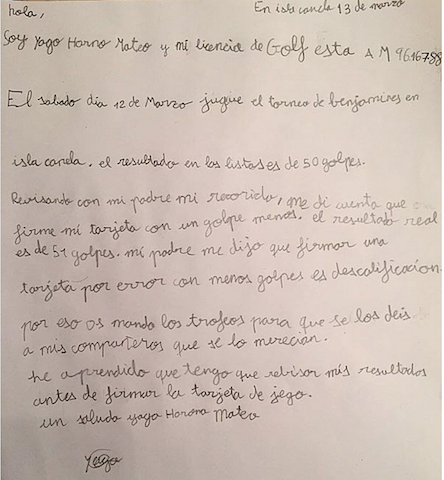 hola,
En isla canela 13 de marzo
Soy Yago Horno Mateo y mi licencia de Golf esta A M 9616788
El sabado dia 12 de Marzo jugue el torneo de benjamines en
isla canela. el resultado en las listas es de 50 golpes.
Revisando con mi padre mi recorrido, me di cuenta que
firme mi tarjeta con un golpe menos. el resultado real
es de 51 golpes. mi padre me dijo que firmar una
tarjeta por error con menos golpes es descalificación.
por eso os mando los trofeos para que se los deis
a mis compañeros que se lo merecian.
he aprendido que tengo que revisar mis resultados
antes de firmar la tarjeta de jego.
un saludo yago Horono Mateo
Yago